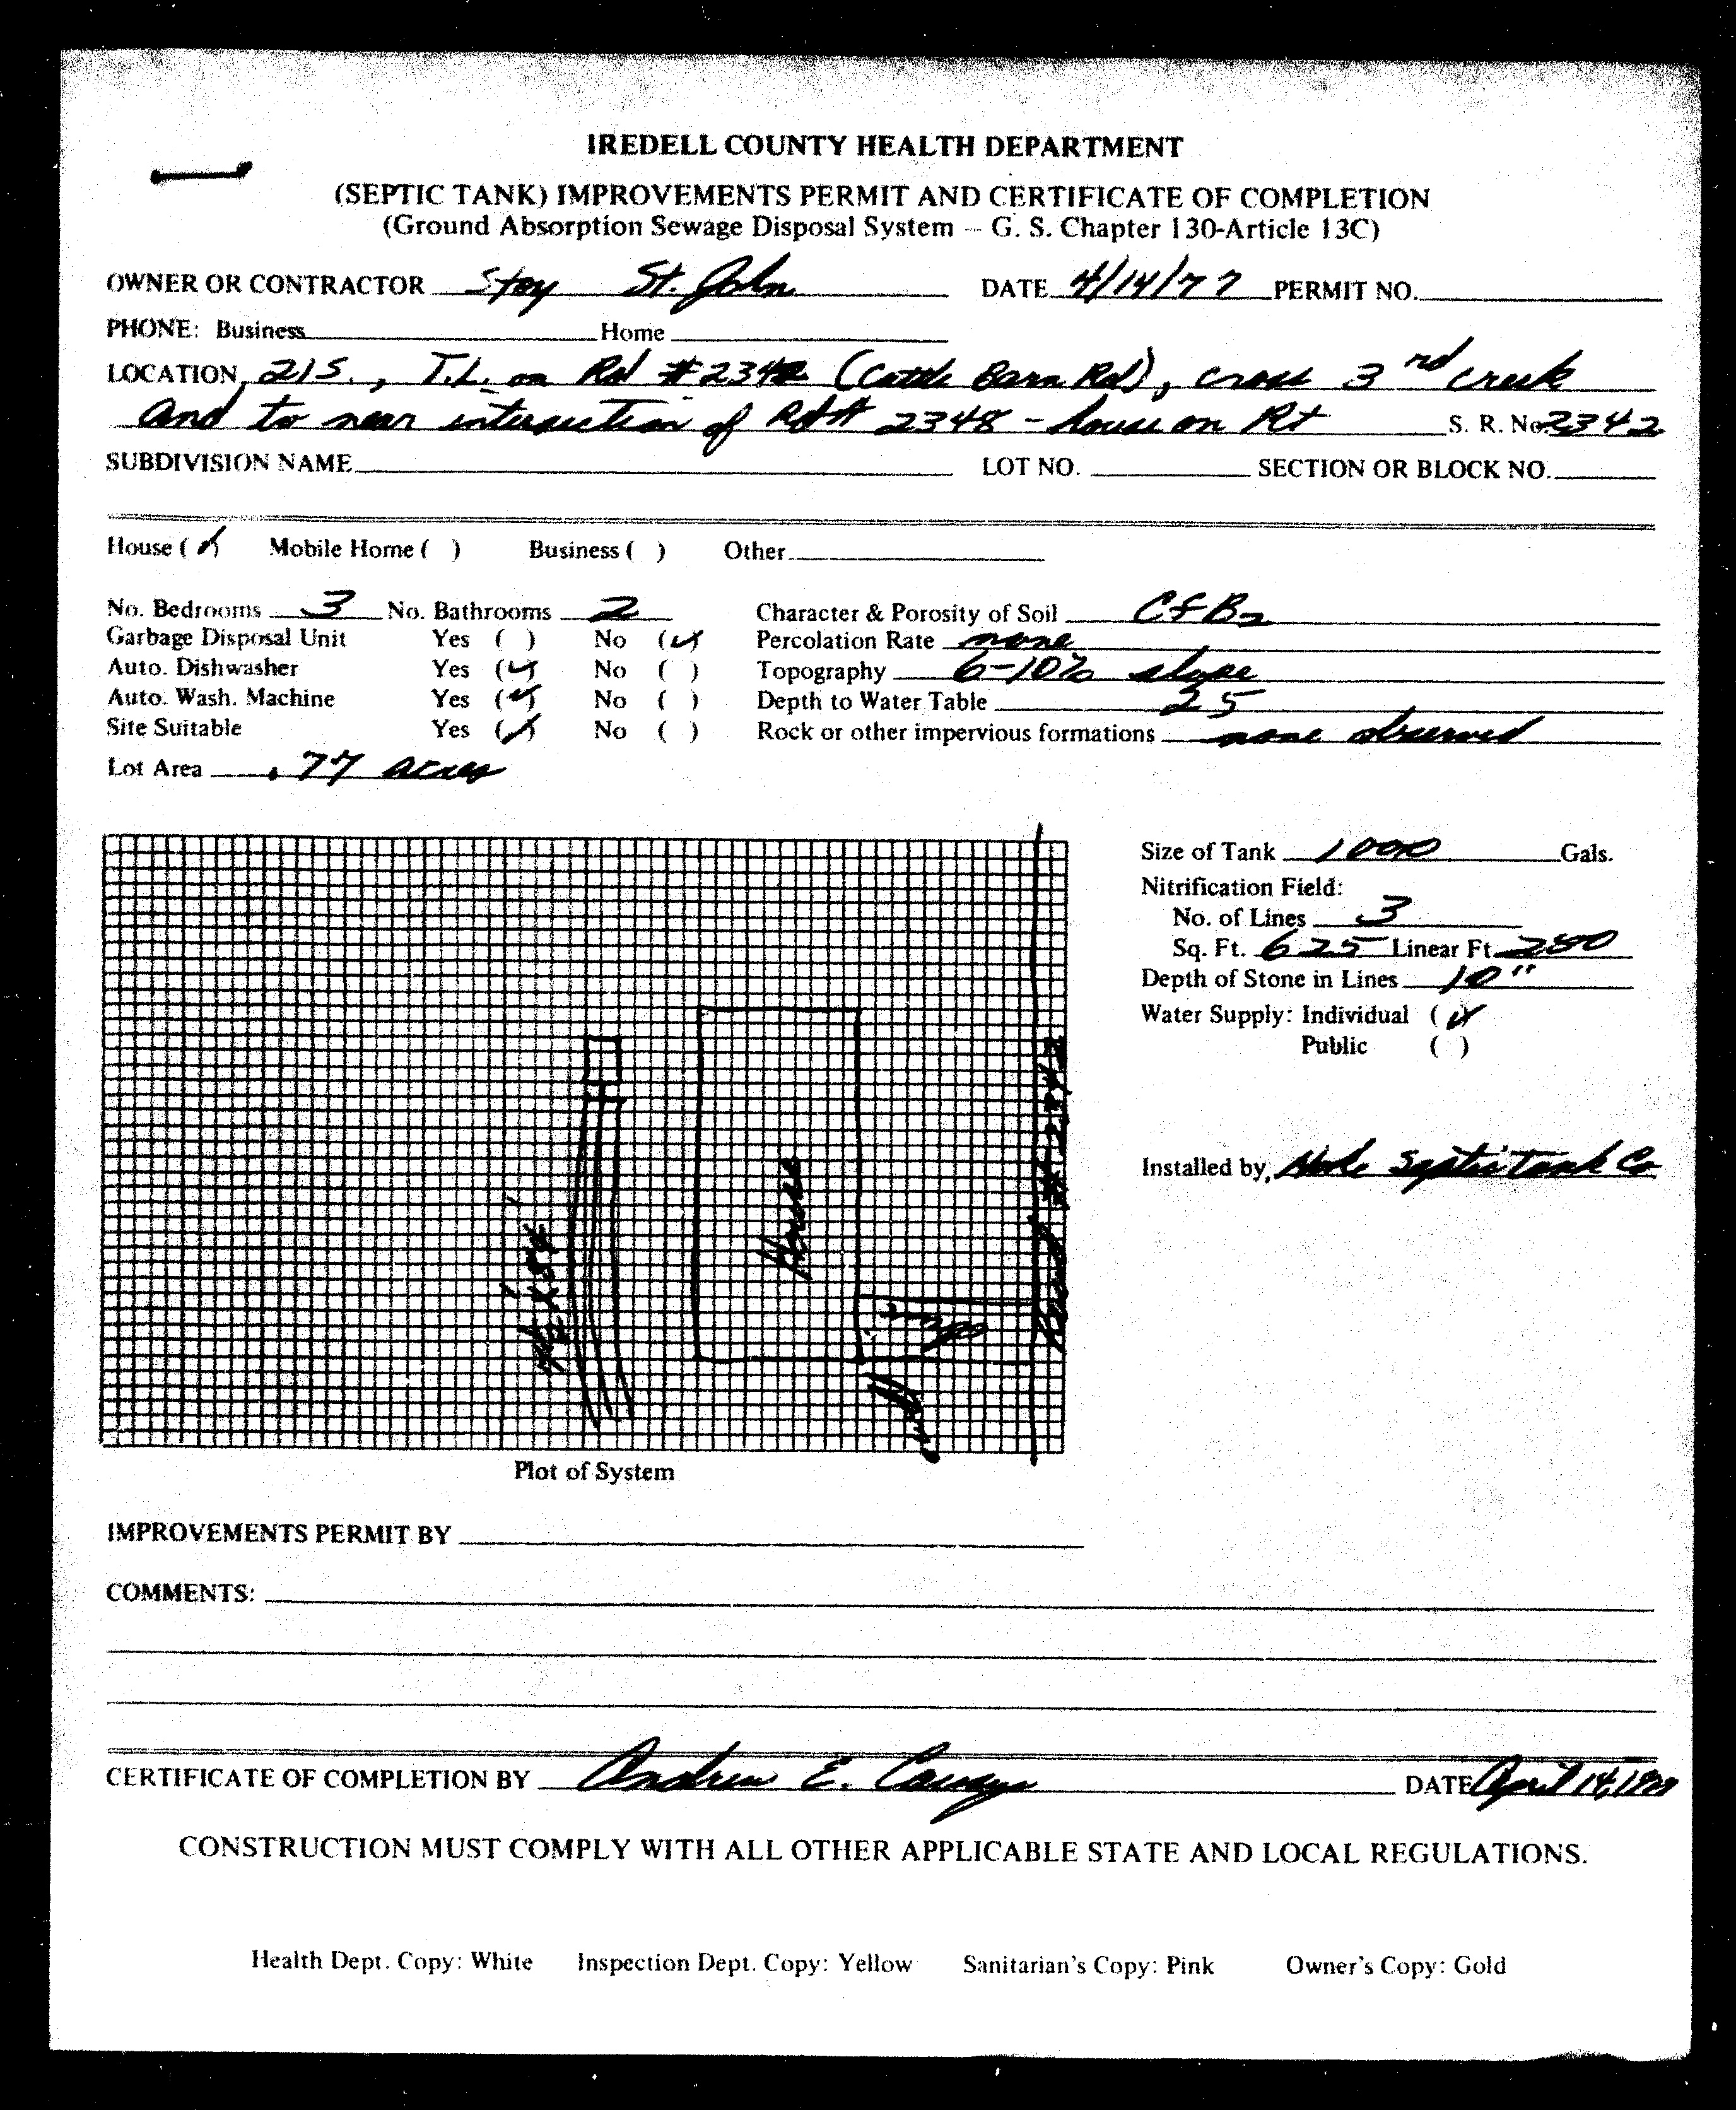 IREDELL COUNTY HEALTH DEPARTMENT
(SEPTIC TANK) IMPROVEMENTS PERMIT AND CERTIFICATE OF COMPLETION
(Ground Absorption Sewage Disposal System -- G. S. Chapter 130-Article 13C)
OWNER OR CONTRACTOR Stoy St. John DATE 4/14/77 PERMIT NO.
PHONE: Business Home
LOCATION 21S., T.L. on Rd #2342 (Cattle Barn Rd), cross 3rd creek
and to near intersection of Rd# 2348 - house on Rt S. R. No 2342
SUBDIVISION NAME LOT NO. SECTION OR BLOCK NO.
House (✓) Mobile Home ( ) Business ( ) Other
No. Bedrooms 3 No. Bathrooms 2 Character & Porosity of Soil CfB2
Garbage Disposal Unit Yes ( ) No (✓) Percolation Rate none
Auto. Dishwasher Yes (✓) No ( ) Topography 6-10% slope
Auto. Wash. Machine Yes (✓) No ( ) Depth to Water Table 25
Site Suitable Yes (✓) No ( ) Rock or other impervious formations none observed
Lot Area .77 acres
Size of Tank 1000 Gals.
Nitrification Field:
No. of Lines 3
Sq. Ft. 625 Linear Ft. 250
Depth of Stone in Lines 10"
Water Supply: Individual (✓)
Public ( )
Installed by, Septic Tank Co
House
Road # 2342
well
Plot of System
IMPROVEMENTS PERMIT BY
COMMENTS:
CERTIFICATE OF COMPLETION BY Andrew E. DATE April 14, 1977
CONSTRUCTION MUST COMPLY WITH ALL OTHER APPLICABLE STATE AND LOCAL REGULATIONS.
Health Dept. Copy: White Inspection Dept. Copy: Yellow Sanitarian's Copy: Pink Owner's Copy: Gold